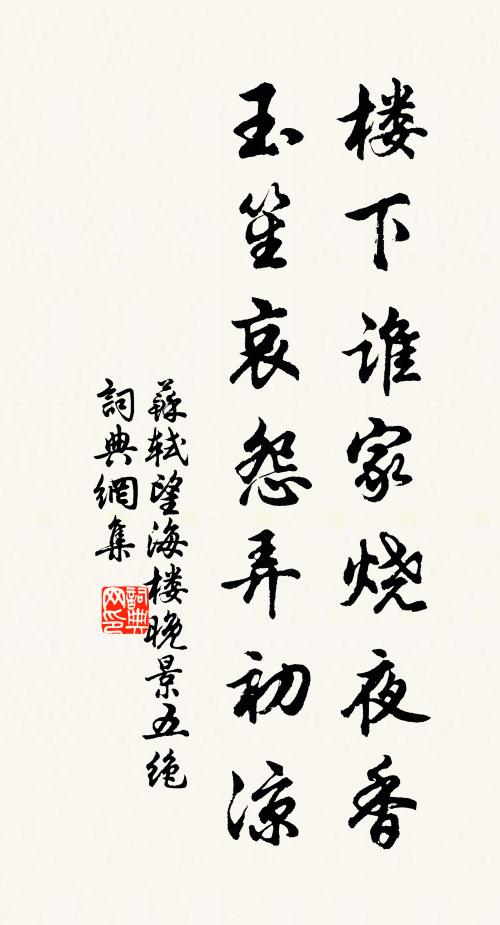 楼下谁家烧夜香
玉笙哀怨弄初凉
蘇轼望海楼晚景五绝
詞典網集
詞典网印